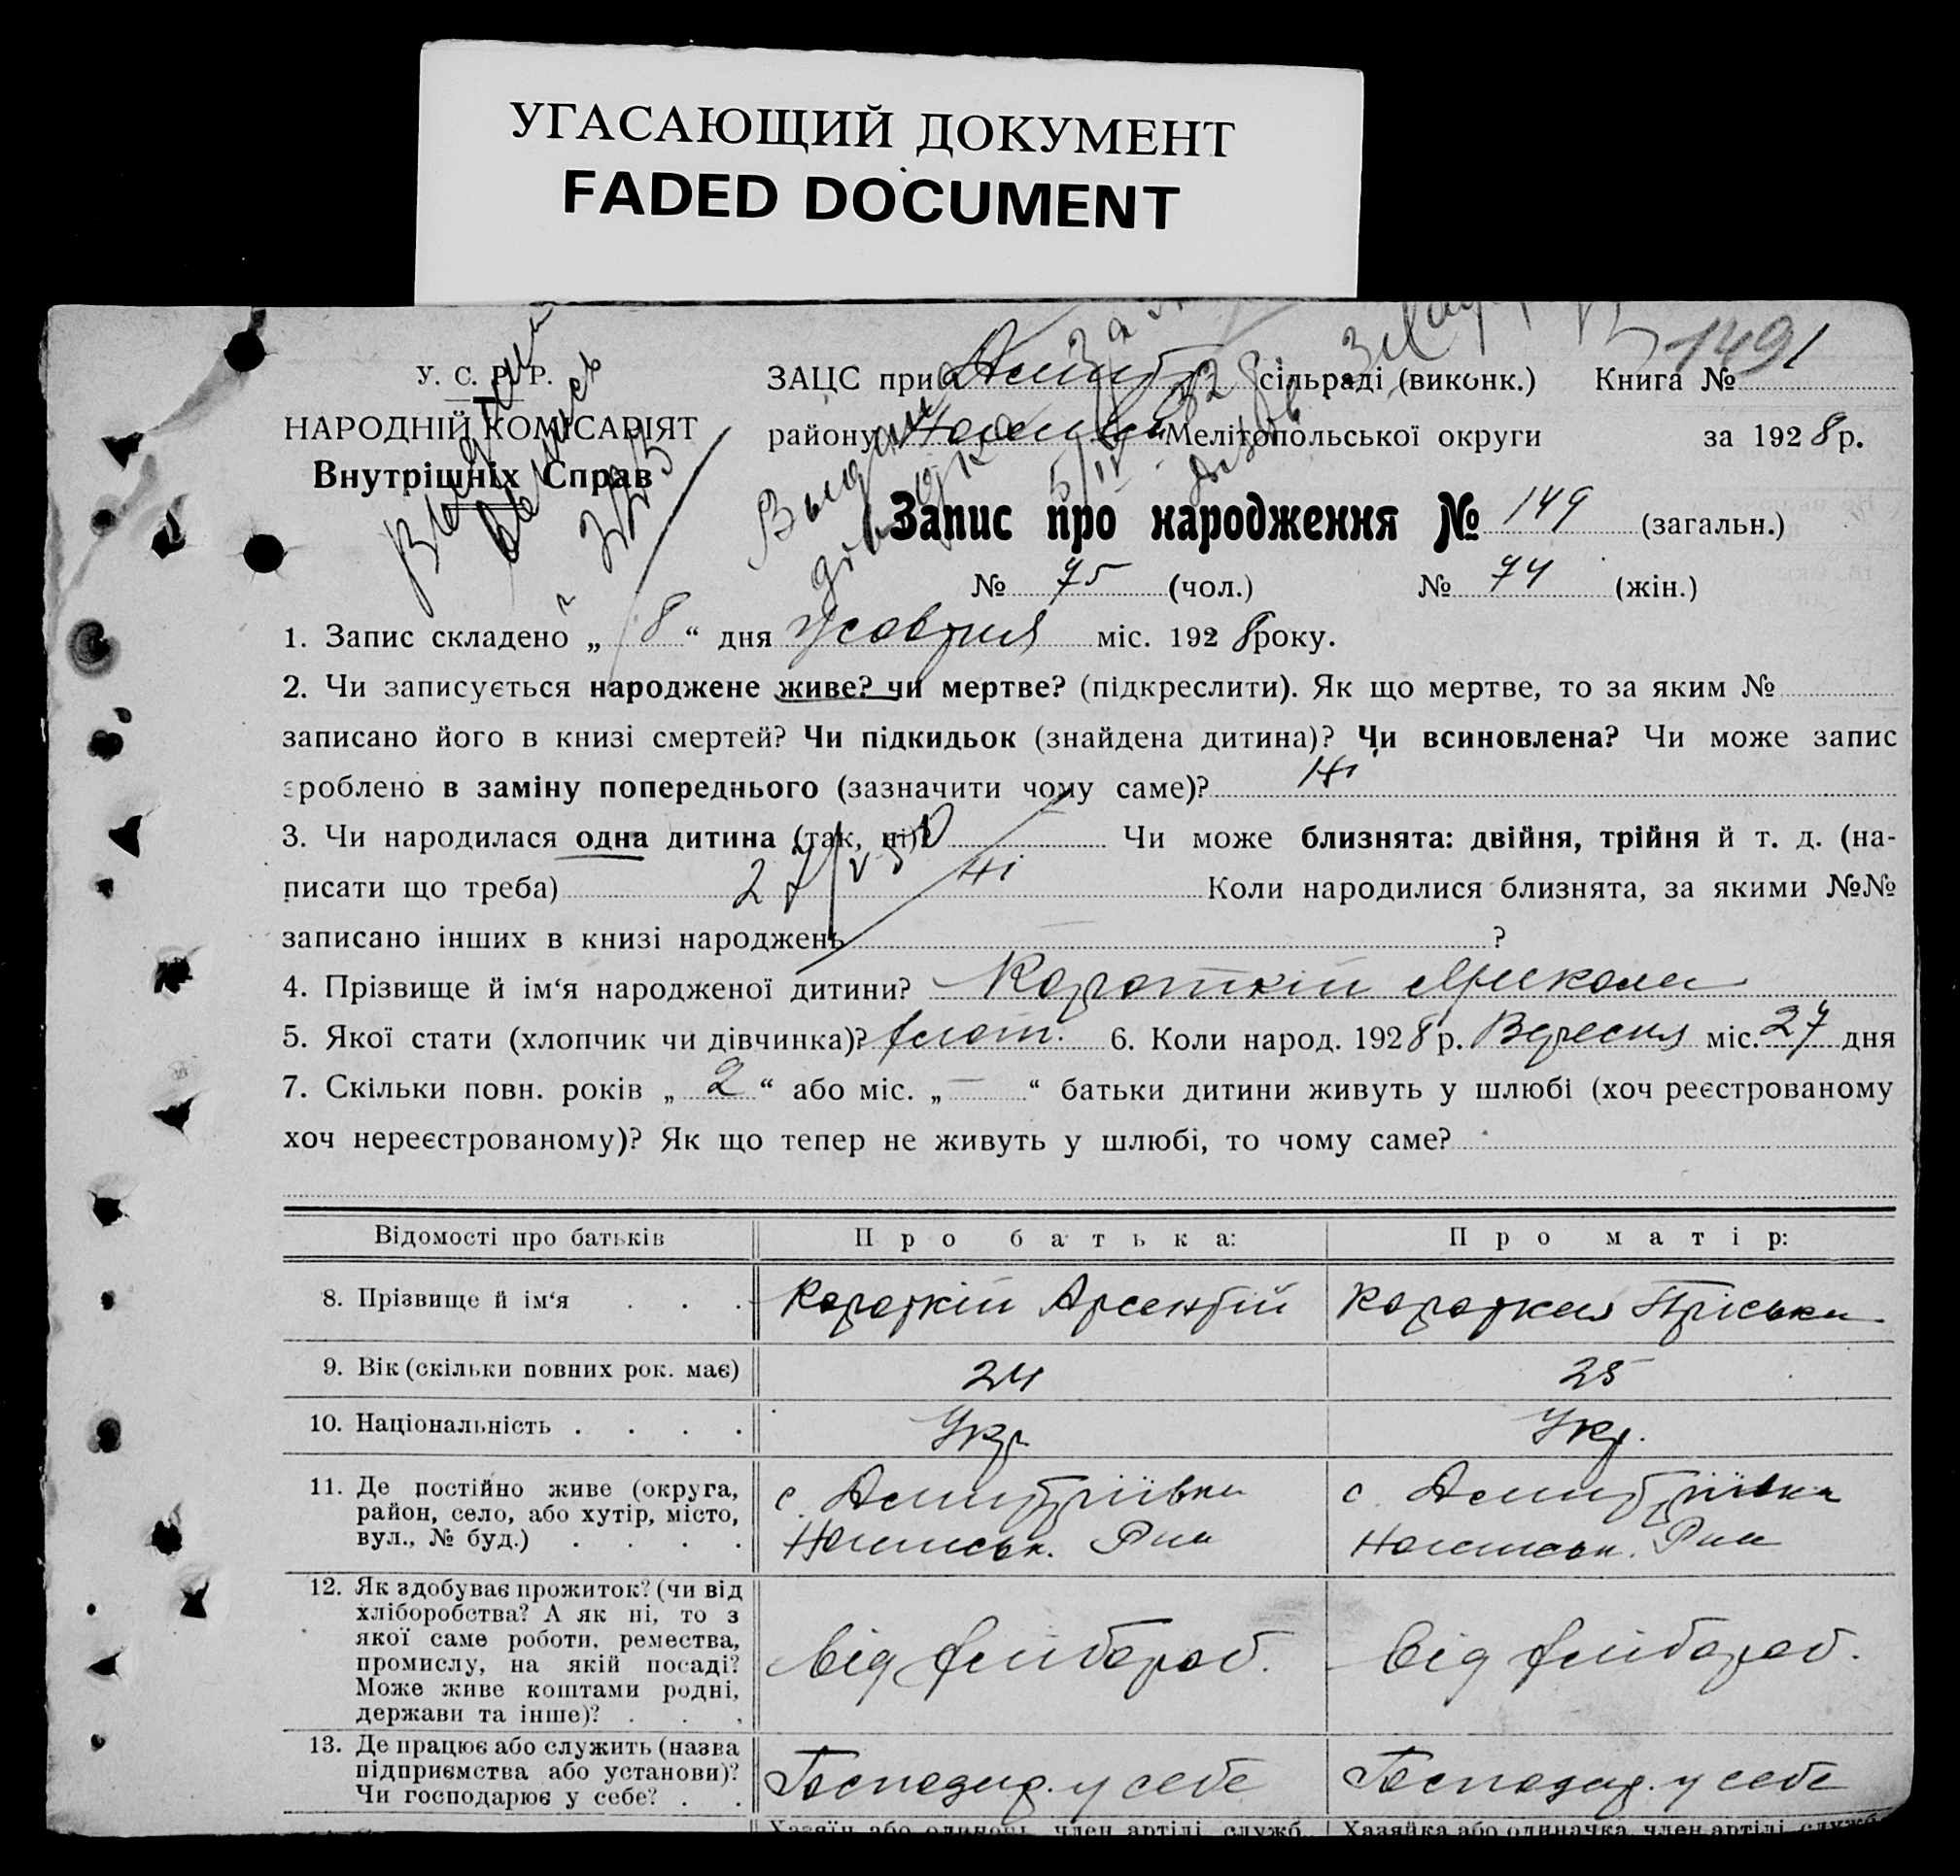 УГАСАЮЩИЙ ДОКУМЕНТ
FADED DOCUMENT
У. С. Р. Р.
НАРОДНІЙ КОМІСАРІЯТ
Внутрішніх Справ
ЗАЦС при сільраді (виконк.) Книга №
149
району Мелітопольської округи за 1928 р.
Запис про народження № 149 (загальн.)
№ 75 (чол.) № 74 (жін.)
1. Запис складено „ 8 “ дня Жовтня міс. 1928 року.
2. Чи записується народжене живе? чи мертве? (підкреслити). Як що мертве, то за яким №
записано його в книзі смертей? Чи підкидьок (знайдена дитина)? Чи всиновлена? Чи може запис
зроблено в заміну попереднього (зазначити чому саме)? Ні
3. Чи народилася одна дитина (так, ні)? Чи може близнята: двійня, трійня й т. д. (на-
писати що треба) Ні Коли народилися близнята, за якими №№
записано інших в книзі народжень ?
4. Прізвище й ім‘я народженої дитини? Короткій Микола
5. Якої стати (хлопчик чи дівчинка)? хлоп. 6. Коли народ. 1928 р. Вересня міс. 27 дня
7. Скільки повн. років „ 2 “ або міс. „ — “ батьки дитини живуть у шлюбі (хоч реєстрованому
хоч нереєстрованому)? Як що тепер не живуть у шлюбі, то чому саме?
Відомості про батьків Про батька: Про матір:
8. Прізвище й ім‘я . . . Короткій Арсентій Короткая Пріська
9. Вік (скільки повних рок. має) 24 25
10. Національність . . . . Укр. Укр.
11. Де постійно живе (округа, с. Демитріївка с. Демитріївка
район, село, або хутір, місто,
вул., № буд.) . . . .
12. Як здобуває прожиток? (чи від
хліборобства? А як ні, то з
якої саме роботи, ремества, від хлібороб. від хлібороб.
промислу, на якій посаді?
Може живе коштами родні,
держави та інше)? . . .
13. Де працює або служить (назва
підприємства або установи)? Господар. у себе Господар. у себе
Чи господарює у себе? . .
Хазяїн або одинокі, член артілі, служб. Хазяйка або одиначка, член артілі, служб.